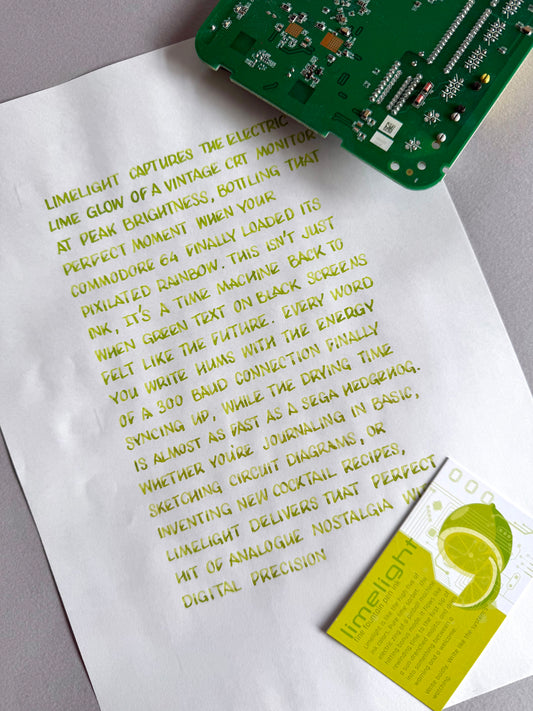 LIMELIGHT CAPTURES THE ELECTRIC
LIME GLOW OF A VINTAGE CRT MONITOR
AT PEAK BRIGHTNESS, BOTTLING THAT
PERFECT MOMENT WHEN YOUR
COMMODORE 64 FINALLY LOADED ITS
PIXILATED RAINBOW. THIS ISN'T JUST
INK, IT'S A TIME MACHINE BACK TO
WHEN GREEN TEXT ON BLACK SCREENS
FELT LIKE THE FUTURE. EVERY WORD
YOU WRITE HUMS WITH THE ENERGY
OF A 300 BAUD CONNECTION FINALLY
SYNCING UP, WHILE THE DRYING TIME
IS ALMOST AS FAST AS A SEGA HEDGEHOG.
WHETHER YOU'RE JOURNALING IN BASIC,
SKETCHING CIRCUIT DIAGRAMS, OR
INVENTING NEW COCKTAIL RECIPES,
LIMELIGHT DELIVERS THAT PERFECT
HIT OF ANALOGUE NOSTALGIA
DIGITAL PRECISION
limelight
fine fountain